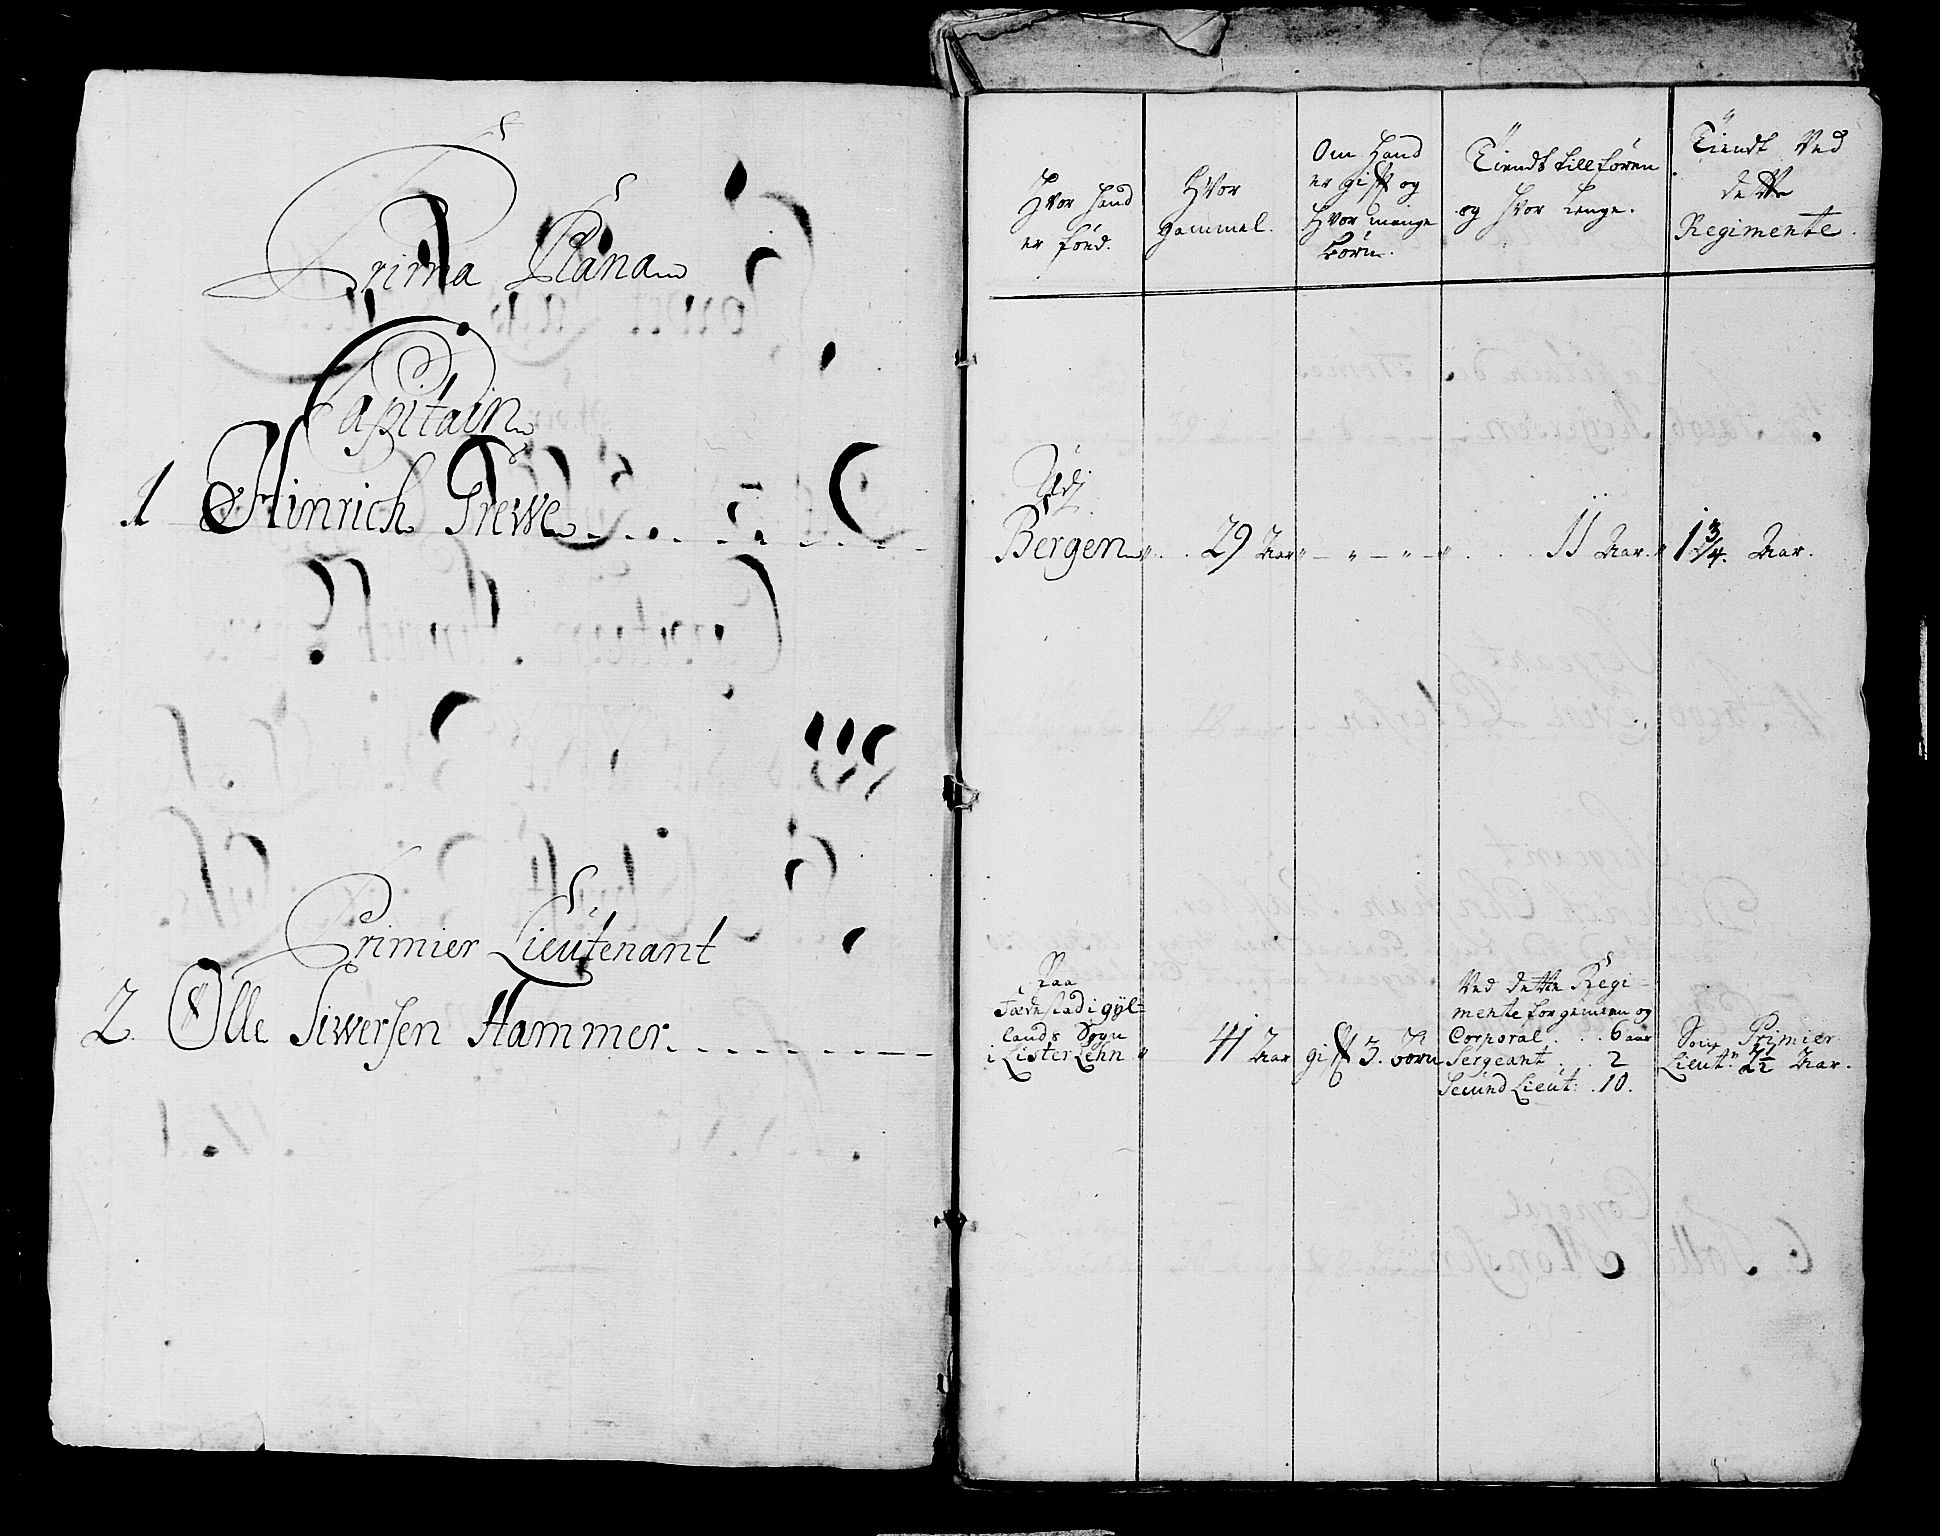 Prima Plana
Capitain
1 Hinrich Grewe
Primier Lieutenant
2. Olle Siwersen Hammer
Hvor hand
er föed.
Hvor
gammel.
Om hand
er gift og
Hvor mange
börn.
Tiendt tillforen
og hvor lenge.
Tiendt Ved
dette
Regimente.
Udj
Bergen 29 Aar 11 Aar. 1 3/4. Aar.
Paa
i gyl-
lands Sogn
i Lister Lehn
41 Aar
gift 3. börn
Ved dette Regi-
mente for gemeen og
Corporal . . . 6 aar
Sergeant . . 2
Secund Lieut: . 10.
Som Primier
Lieut: 2 1/2 Aar.